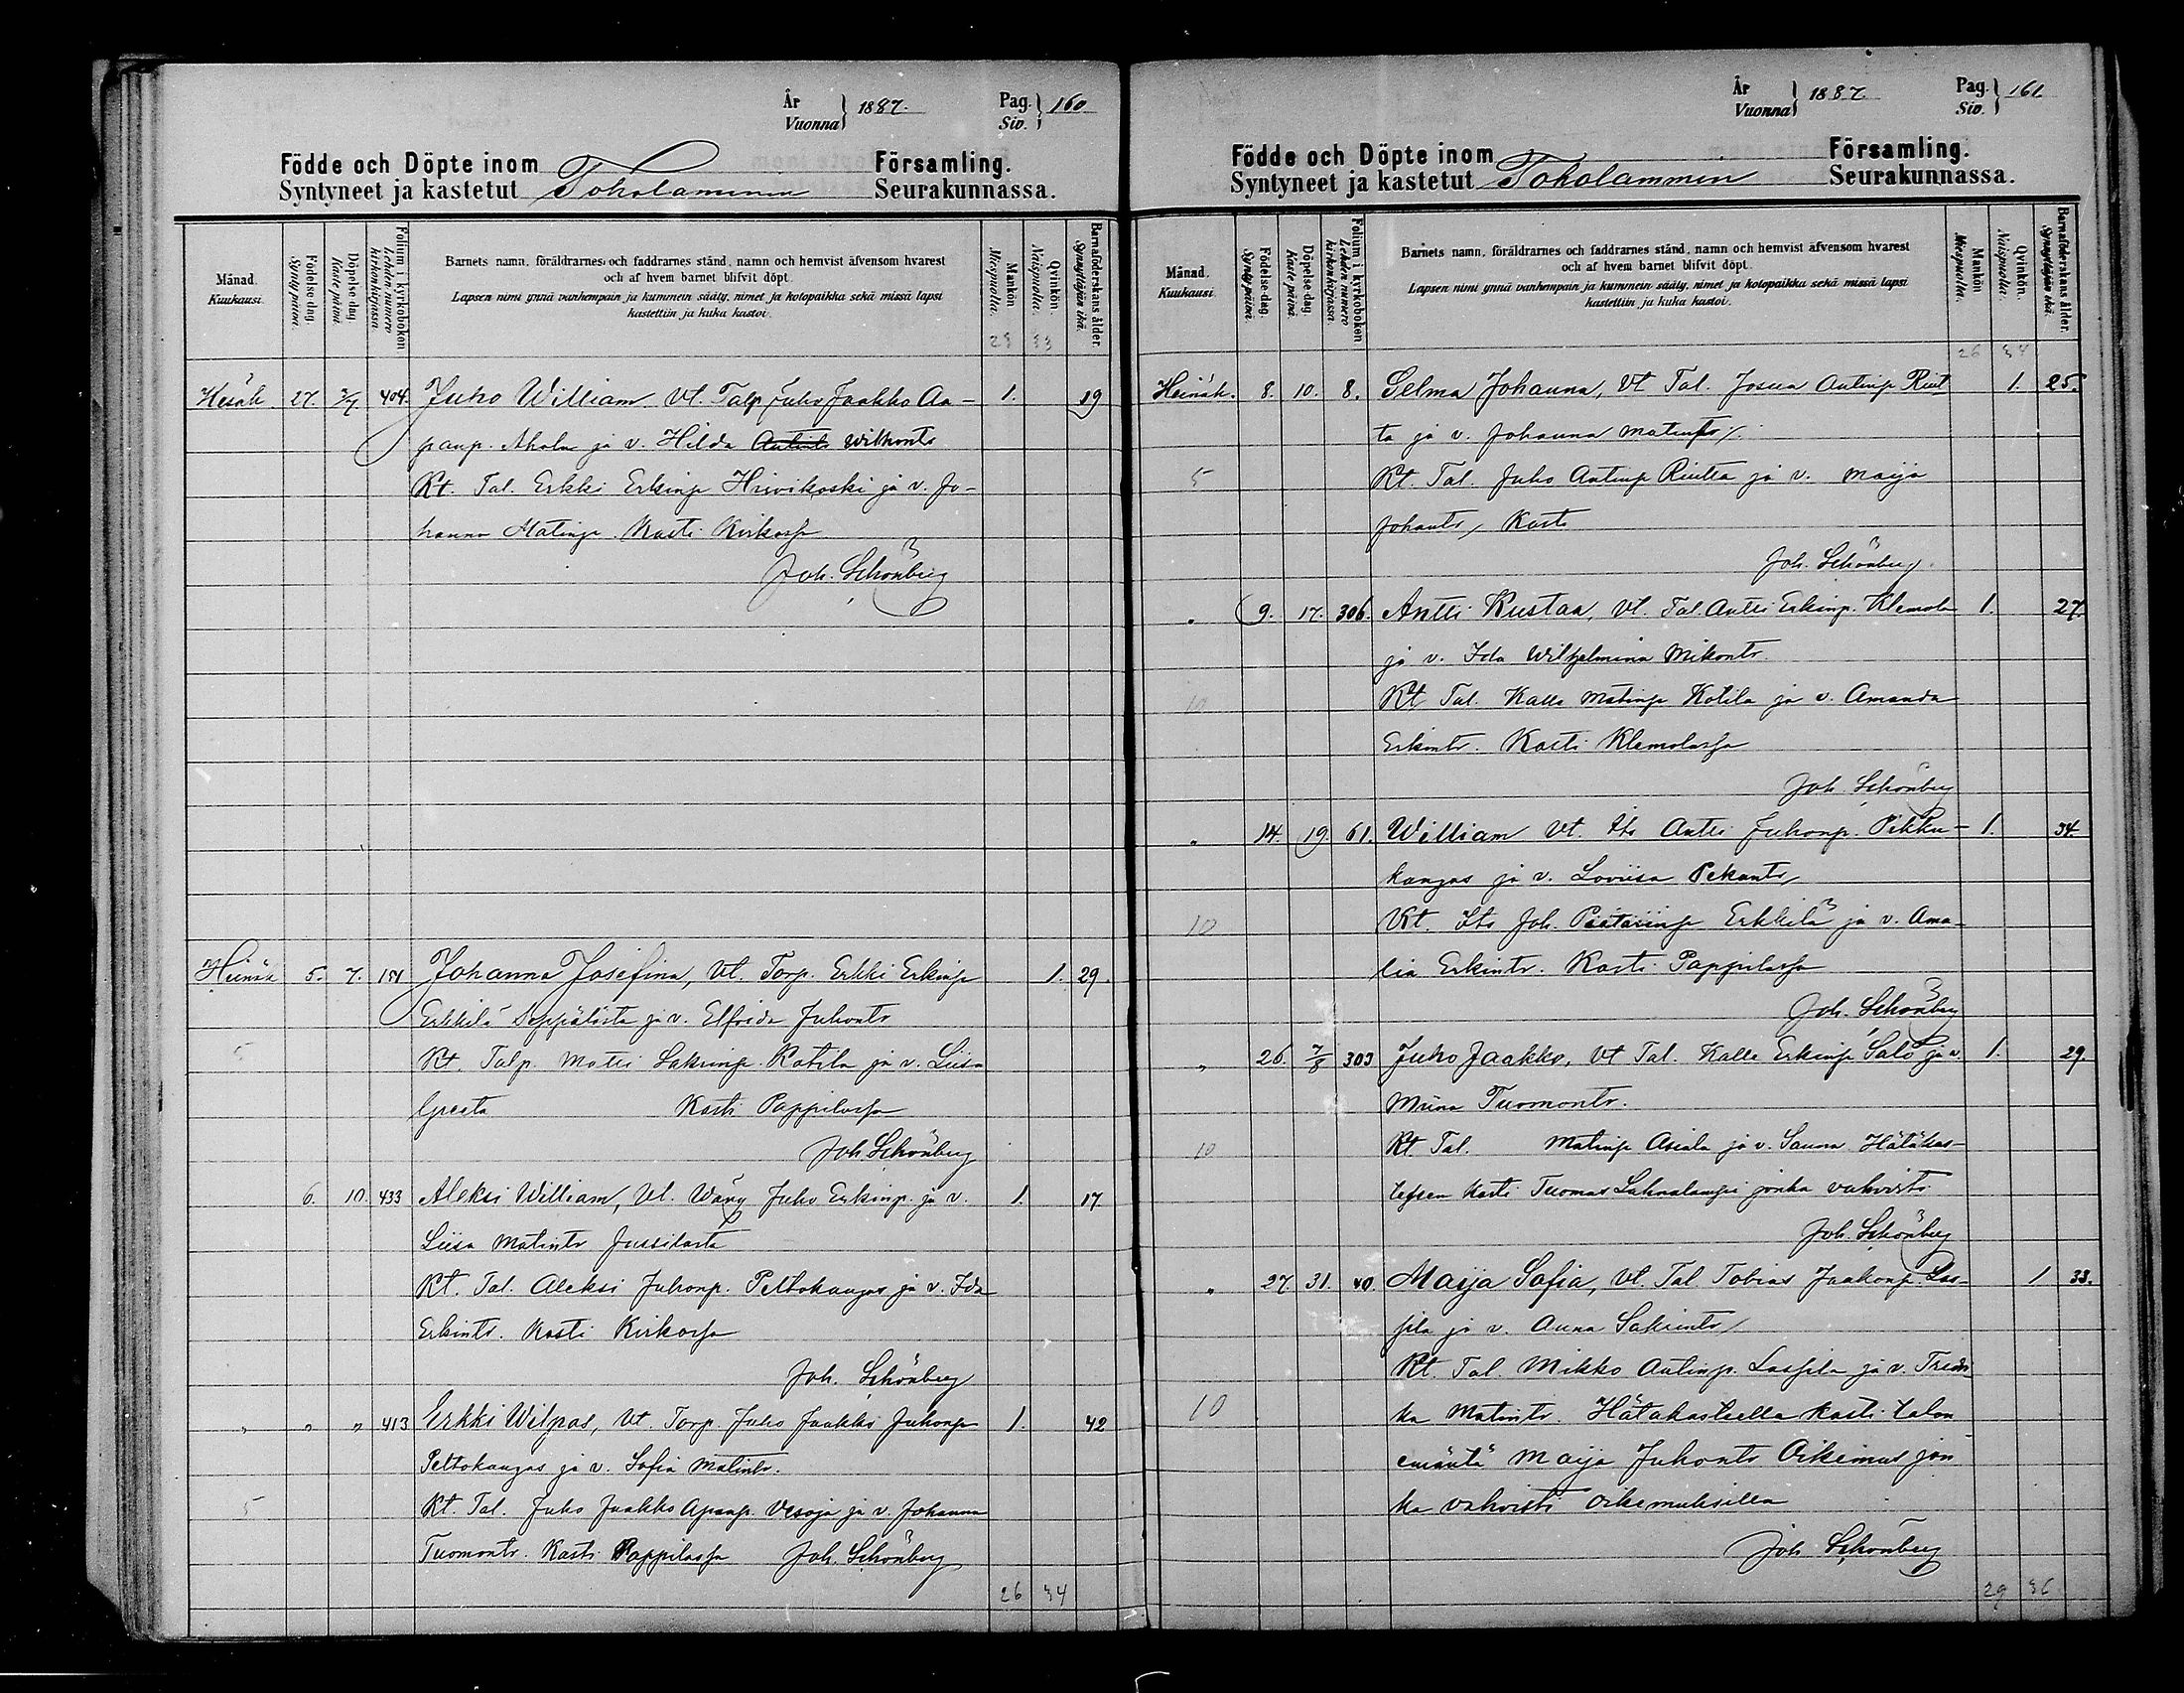 År
Vuonna } 1887.
Pag.
Siv. } 160
Födde och Döpte inom
Syntyneet ja kastetut Toholammin
Församling.
Seurakunnassa.
Månad.
Kuukausi.
Födelse-dag.
Synty päivä.
Döpelse dag.
Kaste päivä.
Folium i kyrkoboken
Lehden numero
kirkonkirjassa.
Barnets namn, föräldrarnes och faddrarnes stånd, namn och hemvist äfvensom hvarest
och af hvem barnet blifvit döpt.
Lapsen nimi ynnä vanhempain ja kummein sääty, nimet ja kotopaikka sekä missä lapsi
kastettiin ja kuka kastoi.
Mankön.
Miespuolia.
Qvinkön.
Naispuolia.
Barnaföderskans ålder.
Synnyttäjän ikä.
23 33
Kesäk. 27. 3/7 404. Juho William. Vt. Talp Juho Jaakko Aa- 1. 19
panp. Ahola ja v. Hilda Antints Wilhonts
Kt. Tal. Erkki Erkinp Hirvikoski ja v. Jo-
hanna Matinp. Kasti Kirkossa
Joh. Schönberg
Heinäk 5. 7. 151 Johanna Josefina, Vt. Torp. Erkki Erkinp 1. 29.
Erkkilä Seppälästa ja v. Elfrida Juhonts
5 Kt. Talp. Matti Sakrinp. Kotila ja v. Liisa
Greeta Kasti Pappilassa
Joh. Schönberg
6. 10. 433 Aleksi William, Vt. Wäry Juho Erkinp. ja v. 1. 17.
Liisa Matints Jussilasta
Kt. Tal. Aleksi Juhonp. Peltokangas ja v. Ida
Erkints. Kasti Kirkossa
Joh. Schönberg
" " " 413 Erkki Wilpas, Vt. Torp. Juho Jaakko Juhonp 1. 42
Peltokangas ja v. Sofia Matints.
5 Kt. Tal. Juho Jaakko Apanp. Vesoja ja v. Johanna
Tuomonts. Kasti Pappilassa Joh. Schönberg
26 34
År
Vuonna } 1887
Pag.
Siv. } 161
Födde och Döpte inom
Syntyneet ja kastetut Toholammin
Församling.
Seurakunnassa.
Månad.
Kuukausi.
Födelse-dag.
Synty päivä.
Döpelse-dag.
Kaste päivä.
Folium i kyrkoboken
Lehden numero
kirkonkirjassa.
Barnets namn, föräldrarnes och faddrarnes stånd, namn och hemvist äfvensom hvarest
och af hvem barnet blifvit döpt.
Lapsen nimi ynnä vanhempain ja kummein sääty, nimet ja kotopaikka sekä missä lapsi
kastettiin ja kuka kastoi.
Mankön
Miespuolia.
Qvinkön.
Naispuolia.
Barnaföderskans ålder.
Synnyttäjän ikä.
26 34
Heinäk. 8. 10. 8. Selma Johanna, Vt Tal. Josua Antinp Riut 1. 25.
ta ja v. Johanna Matints
5 Kt. Tal. Juho Antinp Riutta ja v. Maija
Johants, Kasti
Joh. Schönberg.
" 9. 17. 306. Antti Kustaa, Vt. Tal. Antti Erkinp. Klemola 1. 27.
ja v. Ida Wilhelmina Mikonts.
10 Kt Tal. Kalle Matinp Kotila ja v. Amanda
Erkints. Kasti Klemolassa
Joh. Schönberg
" 14. 19. 61. William Vt. Its Antti Juhonp. Pikku- 1. 34.
kangas ja v. Loviisa Pekants
10 Kt. Its Joh. Pietarinp Erkkilä ja v. Ama-
lia Erkints. Kasti Pappilassa
Joh. Schönberg
" 26. 7/8 303 Juho Jaakko, Vt Tal. Kalle Erkinp Salo ja v. 1. 29.
Miina Tuomonts.
10 Kt. Tal. Matinp Asiala ja v. Sanna Hätäkas-
teeseen kasti Tuomas Lahnalampi jonka vahvisti
Joh. Schönberg
" 27. 31. 40. Maija Sofia, Vt. Tal Tobias Jaakonp. Las- 1 33.
sila ja v. Anna Sakrints
Kt. Tal. Mikko Antinp. Lassila ja v. Fredri
10 ka Matints. Hätäkasteella kasti talon
emäntä Maija Juhonts Oikemus jon
ka vahvisti Oikemuksella
Joh Schönberg
29 36